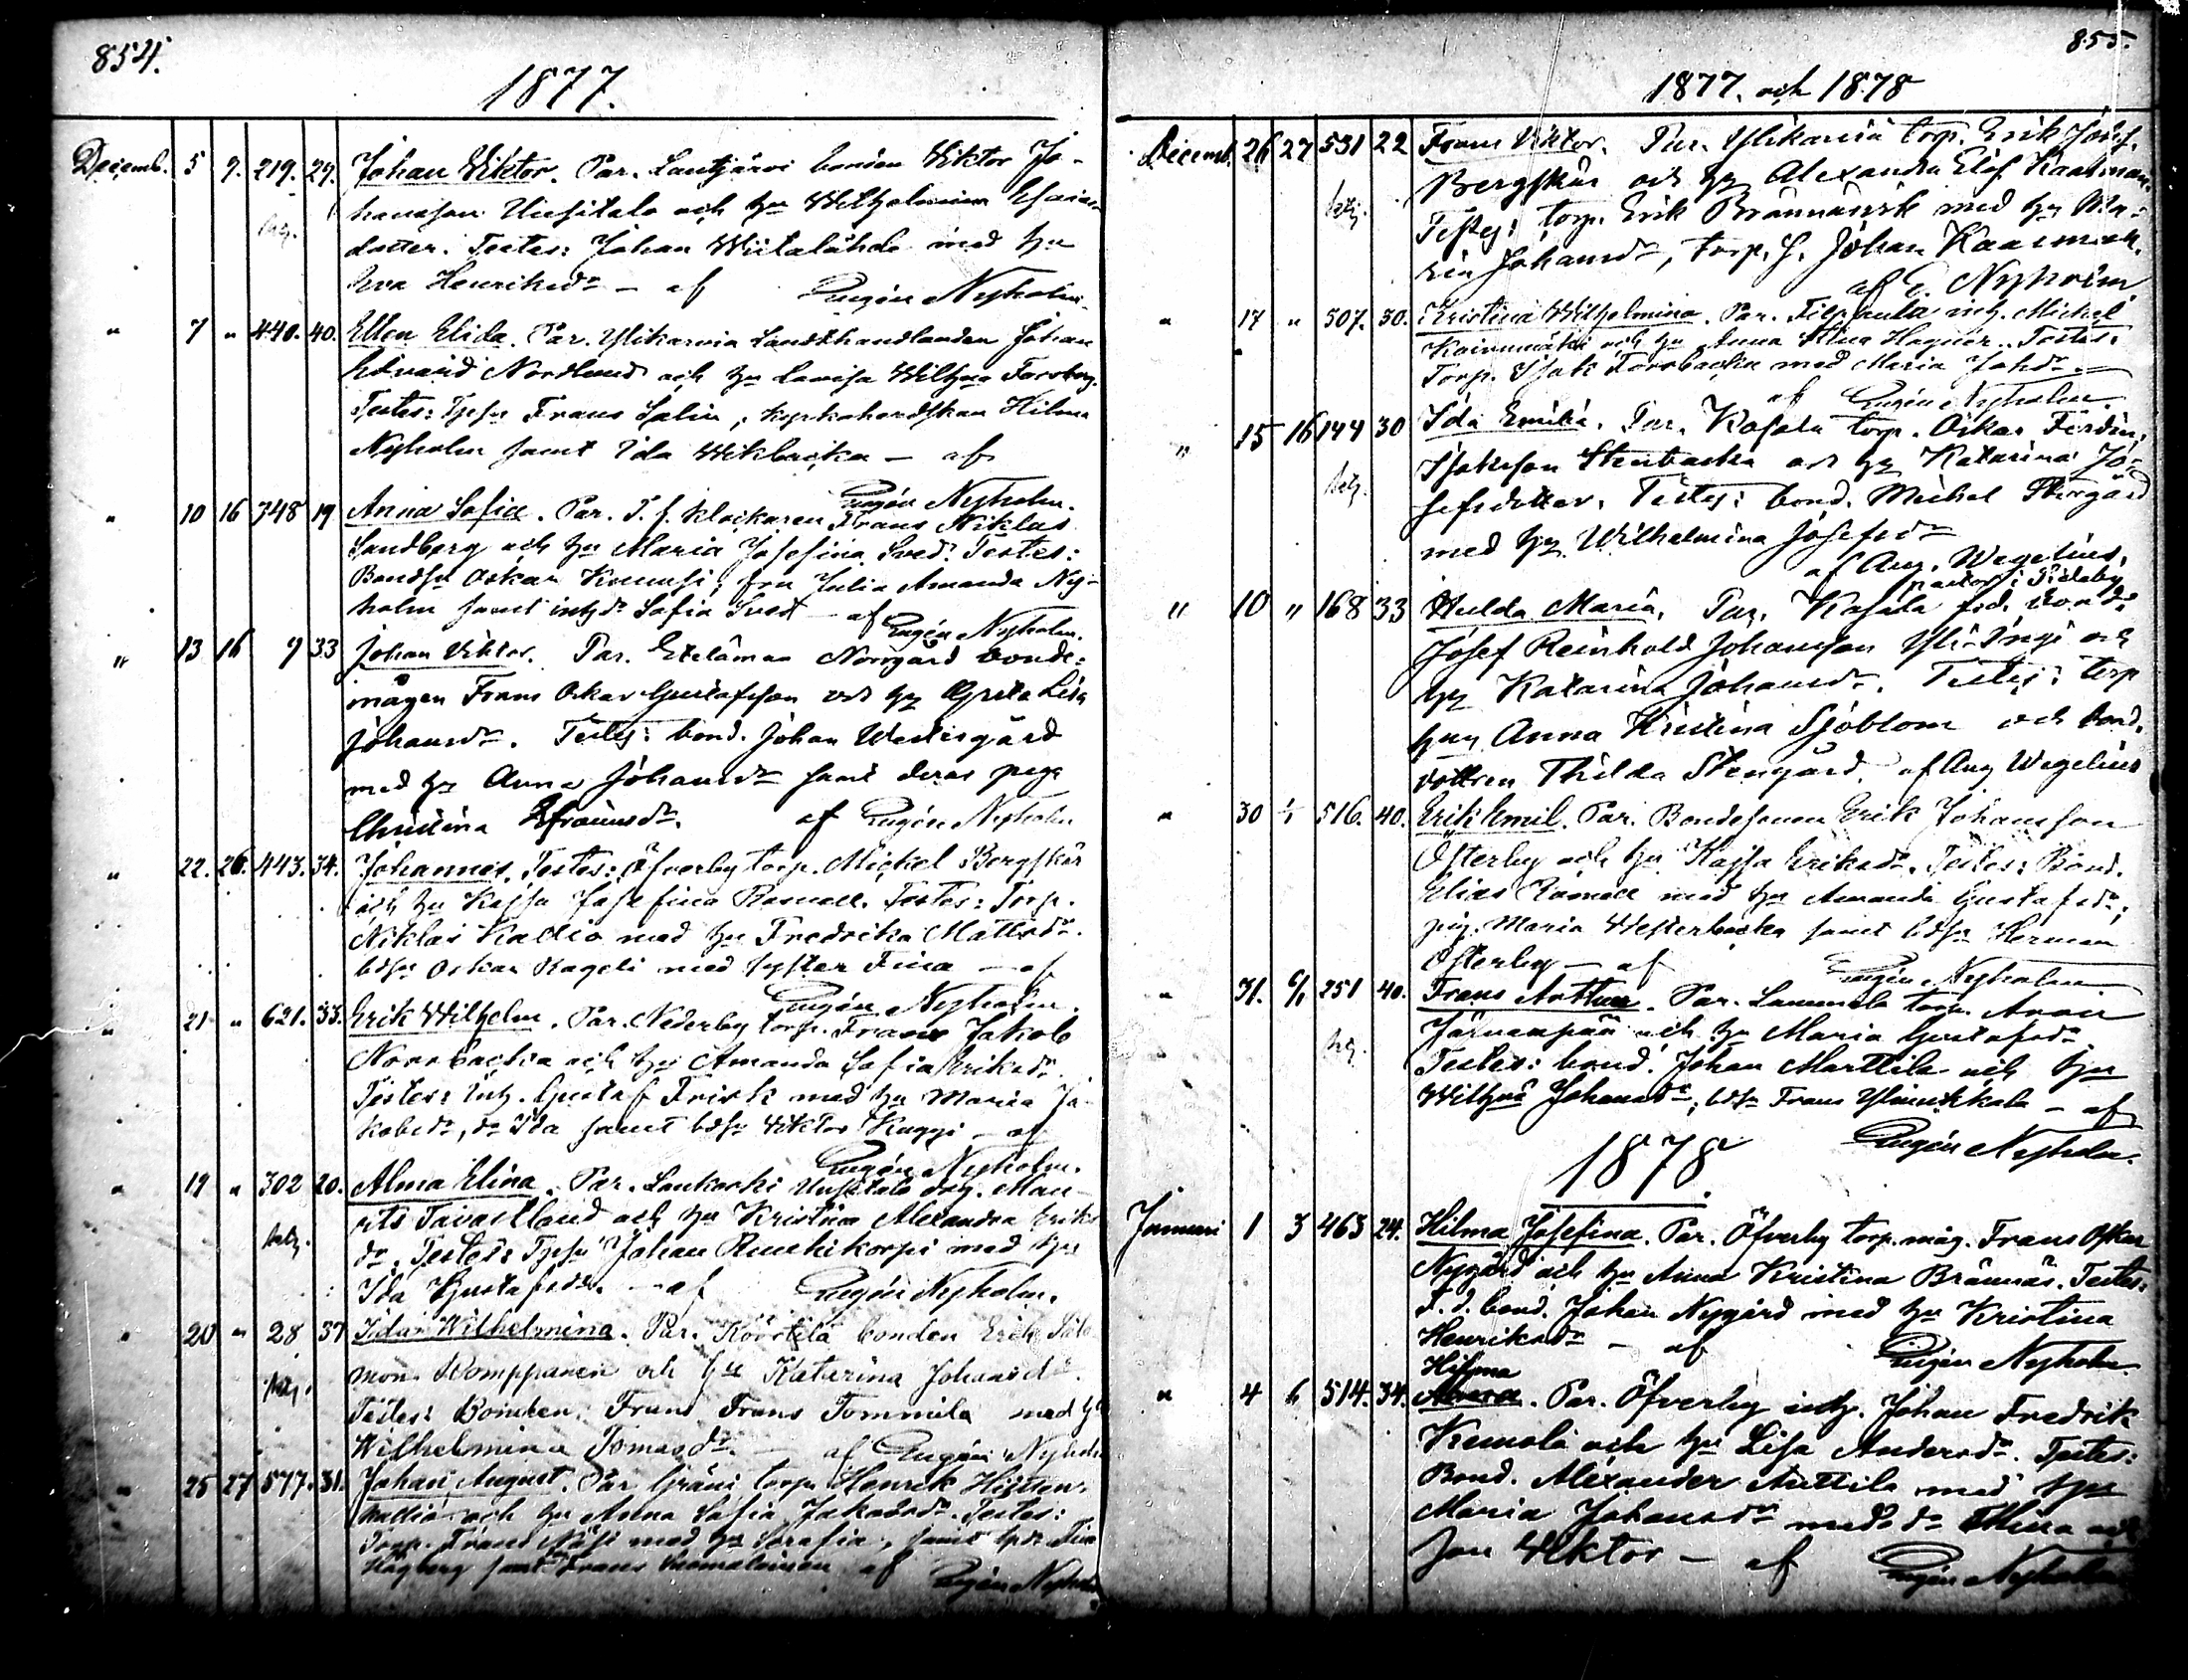 854.
1877.
Decemb. 5 9. 219. 29. Johan Wiktor. Par. Lantjärvi bonden Wiktor Jo-
hansson Uusitalo och hu Wilhelmina Esaias
dotter. Testes: Johan Wiitalähde med hu
Eva Henriksdr – af Eugén Nyholm.
" 7 " 440. 40. Ellen Elida. Par. Ylikarvia Landthandlanden Johan
Edvard Nordlund och hu Lovisa Wilhna Forsberg.
Testes: Frans Salin, kyrkoherdskan Hilma
Nyholm samt Ida Wikbacka – af
Eugén Nyholm.
" 10 16 348 19 Anna Sofia. Par. T. f. klockaren Frans Niklas
Sandberg och hu Maria Josefina Sved. Testes:
Bondsn Oskar, fru Julia Amanda Ny-
holm samt inhdr Sofia Sved – af
Eugén Nyholm.
" 13 16 9 33 Johan Viktor. Par. Etelämaa Norrgård bonde-
mågen Frans Oskar Gustafsson och hu Greta Lisa
Johansdr. Testes: bond. Johan Westergård
med hu Anna Johansdr samt deras piga
Christina Efraimsdr. af Eugén Nyholm
" 22. 26. 443. 34. Johannes. Testes: Öfverby torp. Mickel Bergskär
och hu Kajsa Josefina Rosnell. Testes: Torp.
Niklas Kallio med hu Fredrika Mattsdr.
bdsn Oskar Rageli med syster Fina – af
Eugén Nyholm.
" 21 " 621. 33. Erik Wilhelm. Par. Nederby torp. Frans Jakob
Norrbacka och hu Amanda Sofia Eriksdr.
Testes: Inh. Gustaf Frisk med hu Maria Ja-
kobsdr, dr Ida samt bdsn Viktor Kuggi – af
Eugén Nyholm.
" 19 " 302 20. Alma Elina. Par. Lankoski Uusitalo drg. Mau-
rits Tavastland och hu Kristina Alexandra Eriks
dr. Testes: Johan Ruuhikorpi med hu
Ida Gustafsdr. – af Eugén Nyholm.
" 20 " 28 37 Wilhelmina. Par. Köörtilä bonden Erik Salo
mon Womppanen och hu Katarina Johansdr.
Testes: Bonden Frans Frans Tommila med hu
Wilhelmina Tomasdr. – af Eugén Nyholm
" 25 27 577. 31. Johan August. Par. Gräni torp. Henrik Hietten-
kallio och hu Anna Sofia Jakobsdr. Testes:
Torp. Frans med hu Serafia, samt
samt Frans af Eugén Nyholm
855.
1877. och 1878
Decemb. 26 27 531 22 Frans Viktor. Par. Ylikarvia torp. Erik Josef.
Bergskär och hu Alexandra Elof Kaasman.
Testes: torp. Erik Brännäsrk med hu Ma-
ria Johansdr, torp. s. Johan Kaasman.
af E. Nyholm
" 17 " 507. 30. Kristina Wilhelmina. Par. Filppula inh. Mickel
Koivumäki och hu Anna Stina Hagnér. Testes:
Torp. Isak Forsbacka med Maria Johdr. –
af Eugén Nyholm.
" 15 16 144 30 Ida Emilia. Par. Kasala torp. Oskar Ferdin.
Isaksson Stenbacka och hu Katarina Jo-
sefsdotter. Testes: bond. Mickel Storgård
med hu Wilhelmina Josefsdr
af Aug. Wegelius,
pastor i Sideby
" 10 " 168 33 Hulda Maria. Par. Kasala f.d. bond.
Josef Reinhold Johansson Yli-Ingi och
hu Katarina Johansdr. Testes: torp
hun Anna Kristina Sjöblom och bond.
dottren Thilda Stengård. af Aug Wegelius
" 30 1/1 516. 40. Erik Emil. Par. Bondesonen Erik Johansson
Österby och hu Kajsa Eriksdr. Testes: Bond.
Elias Rosnell med hu Amanda Gustafsdr,
pig. Maria Westerbacka samt bdsn Herman
Österby – af Eugén Nyholm
" 31. 6/1 251 40. Frans Arthur. Par. Lammela torp. Aron
Järvenpää och hu Maria Gustafsdr
Testes: bond. Johan Marttila och hu
Wilhna Johansdr, bdsn Frans – af
Eugén Nyholm.
1878.
Januari 1 3 463 24. Hilma Josefina. Par. Öfverby torp.måg. Frans Oskar
Nygård och hu Anna Kristina Brännäs. Testes:
F. d. bond. Johan Nygård med hu Kristina
Henriksdr – af Eugén Nyholm.
Hilma
" 4 6 514. 34. Par. Öfverby inh. Johan Fredrik
Kemola och hu Lisa Andersdr. Testes:
Bond. Alexander Anttila med hu
Maria Johansdr med dr Elina och
son Wiktor – af Eugén Nyholm